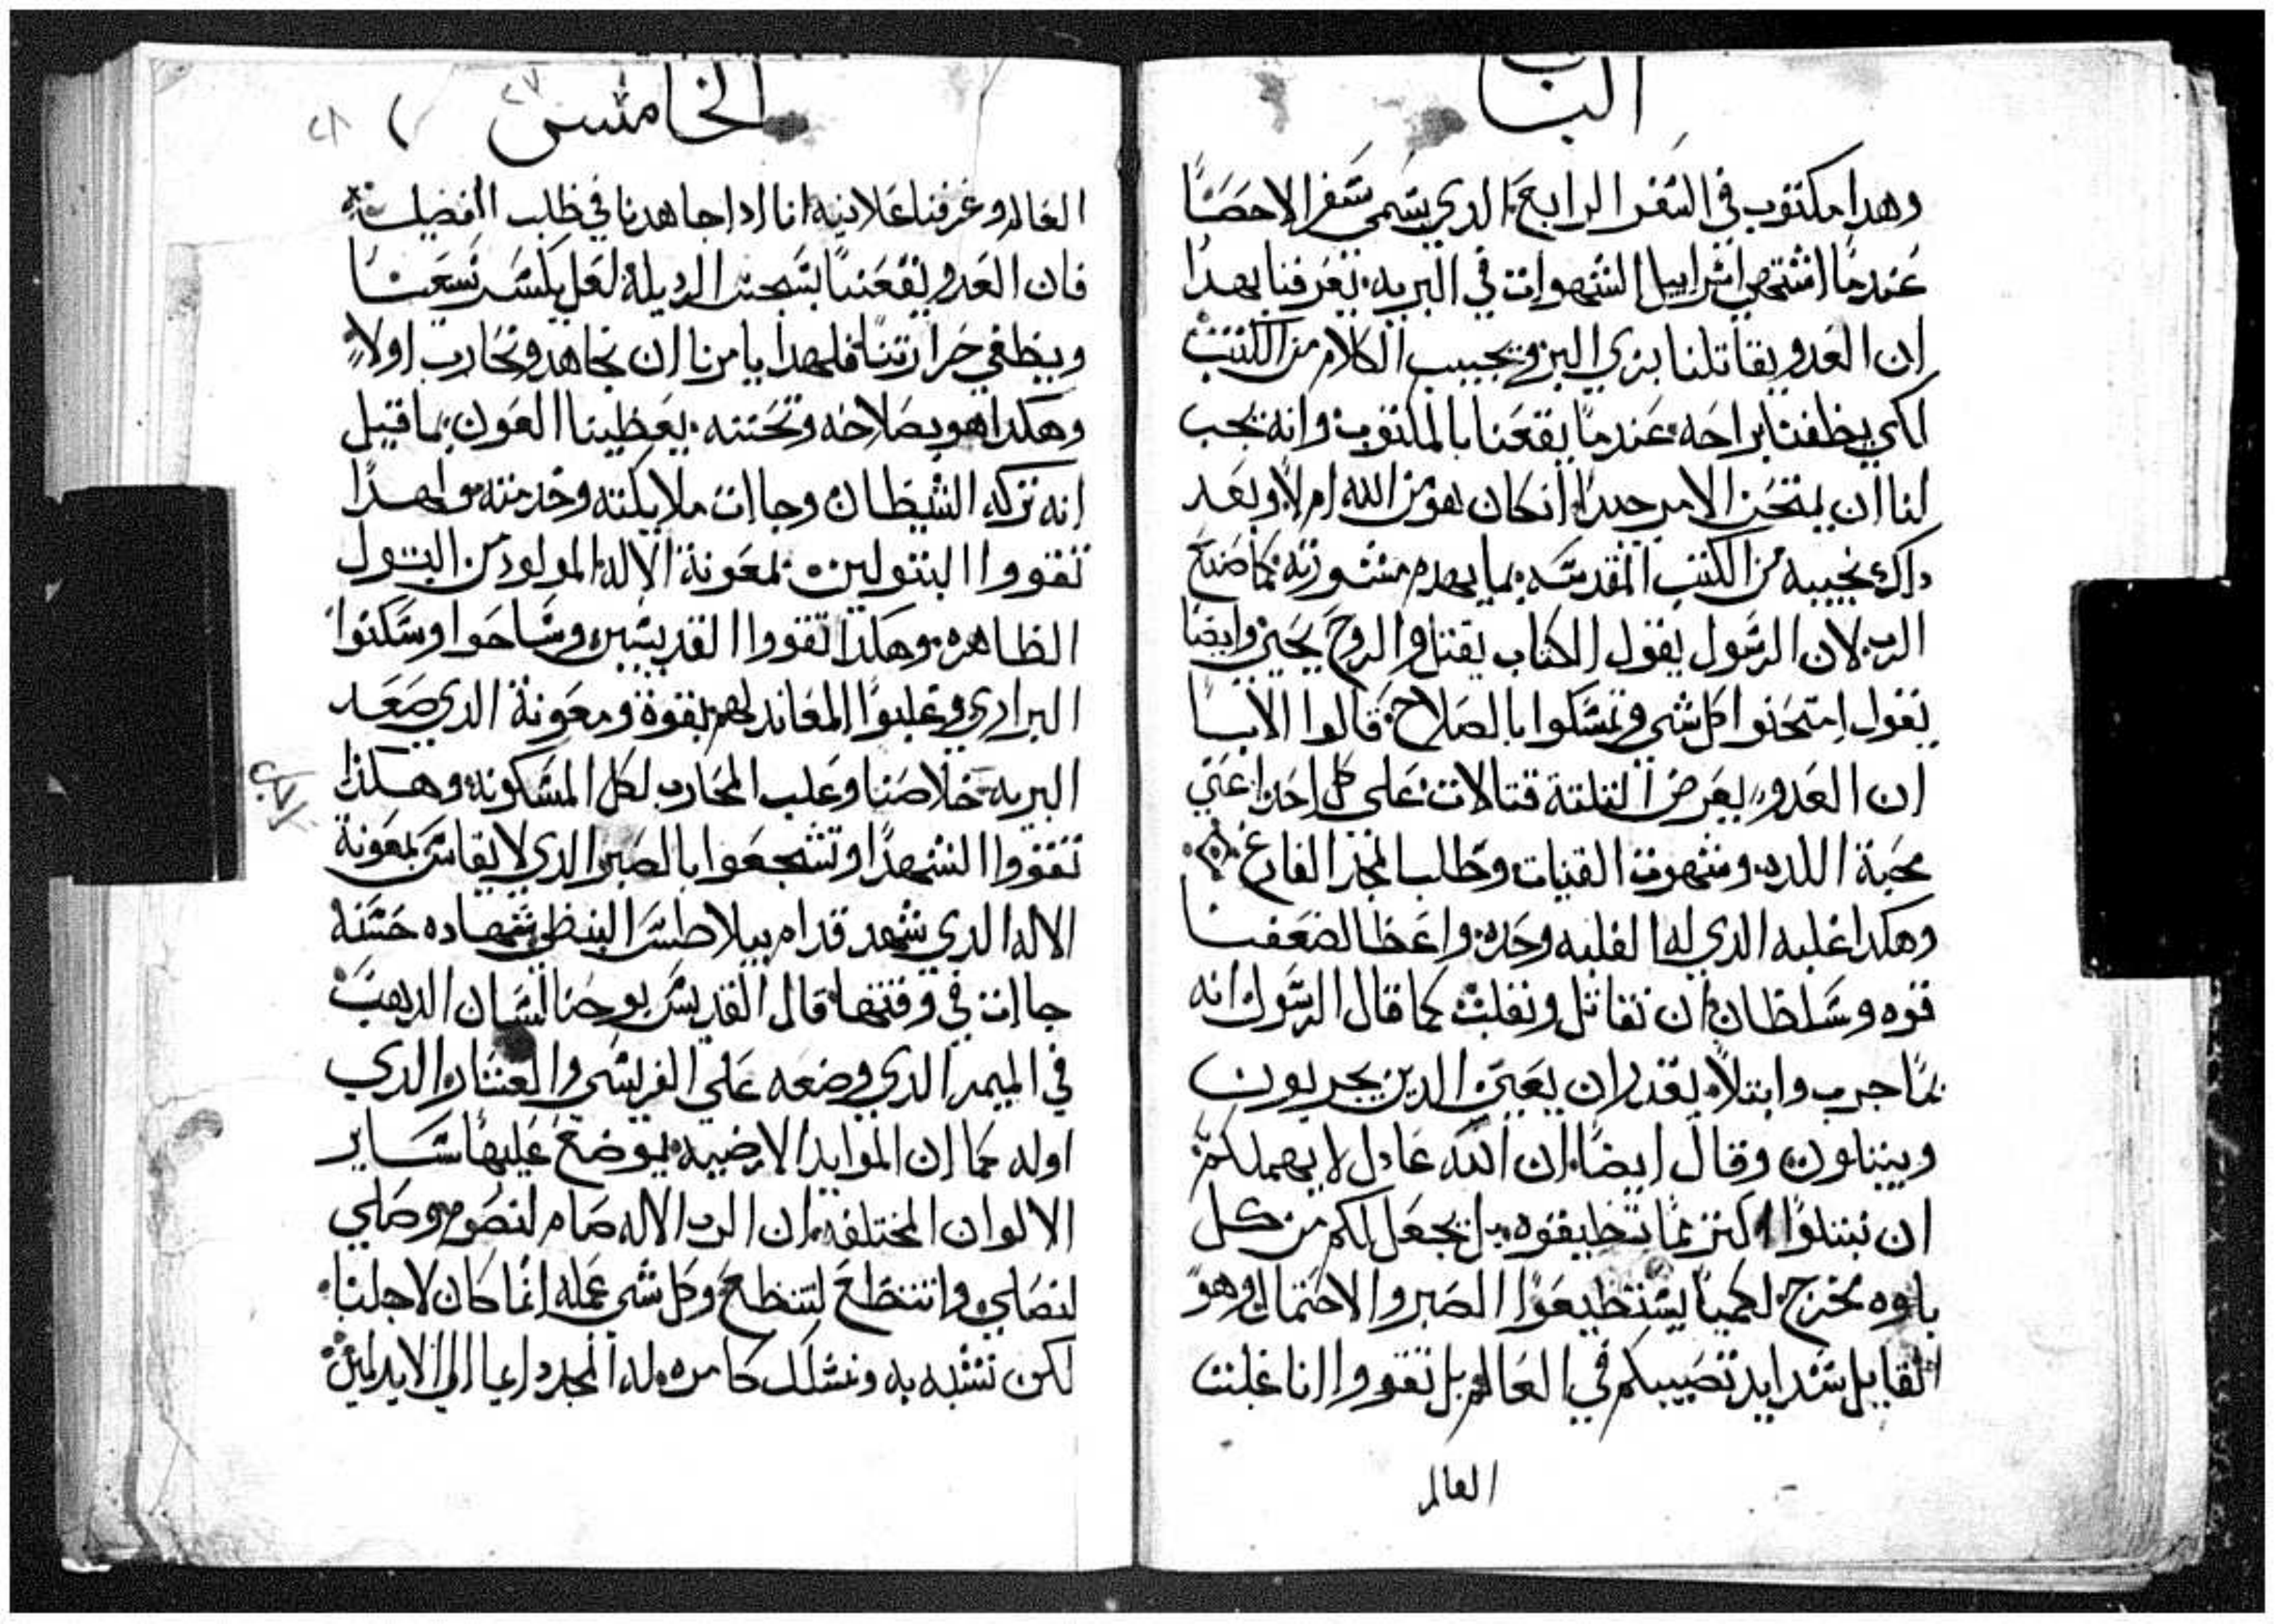 الباب
وهدا مكتوب في السفر الرابع الدي يسمى سفر الاحصا
عندما اشتهى اسراييل الشهوات في البريه. تعرفنا بهدا
ان العدو يقاتلنا بزي البر ويجيب الكلام من الكتب
لكي يطغينا براحه عندما يقنعنا بالمكتوب وانه يجب
لنا ان يمتحن الامر جيدا ان كان هو من الله ام لا وبعد
داك نجيبه من الكتب المقدسه بما يهدم مشورته كما صنع
الرب لان الرسول يقول الكتاب يقتل والروح يحيي وايضا
يقول امتحنوا كل شي وتمسكوا بالصلاح. قالوا الابا
ان العدو يعرض التلتة قتالات على كل احد اعني
محبة اللده وشهوت القنيات وطلب المجد الفارغ
وهكدا غلبه الدي له الغلبه وحده واعطا لضعفنا
قوه وسلطان ان نقاتل ونغلب كما قال الرسول انه
بما جرب وابتلا يقدر ان يعين الدين يجربون
ويبتلون وقال ايضا ان الله عادل لا يهملكم
ان تبتلوا اكتر مما تطيقوه بل يجعل لكم من كل
بلوه مخرج لكيما تستطيعوا الصبر والاحتمال وهو
القايل شدايد تصيبكم في العالم بل تقووا انا غلبت
العالم
الخامس
العالم وعرفنا علانيه انا ادا جاهدنا في طلب الفضيلة
فان العدو يقنعنا بتسحين الرديلة لعل يكسر سعينا
ويطفي حرارتنا فلهدا يامرنا ان نجاهد ونحارب اولا
وهكدا هو بصلاحه وتحننه يعطينا العون بما قيل
انه تركه الشيطان وجاات ملايكته وخدمته ولهدا
تقووا البتولين بمعونة الاله المولود من البتول
الطاهره وهكدا تقووا القديسين وساحوا وسكنوا
البراري وغلبوا المعاند لهم بقوة ومعونة الدي صعد
البريه خلاصنا وغلب المحارب لكل المسكونه وهكدا
تقووا الشهدا وتشجعوا بالصبر الدي لا يقاس بمعونة
الاله الدي شهد قدام بيلاطس البنطي شهاده حسنه
جاات في وقتها قال القديس يوحنا لسان الدهب
في الميمر الدي وضعه على الفريسي والعشار الدي
اوله كما ان الموايد الارضيه يوضع عليها ساير
الالوان المختلفه ان الرب الاله صام لنصوم وصلي
لنصلي واتضع لنتضع وكل شي عمله انما كان لاجلنا
لكن نتشبه به ونسلك كامره له المجد دايما الي الابد امين